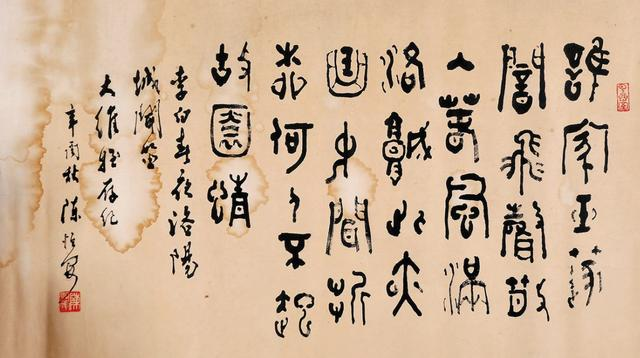 誰家玉篴
闇飛聲散
入春風滿
洛城此夜
曲中聞折
柳何人不起
故園情
李白春夜洛陽
城聞笛
大維存紀
辛酉秋陳恆安